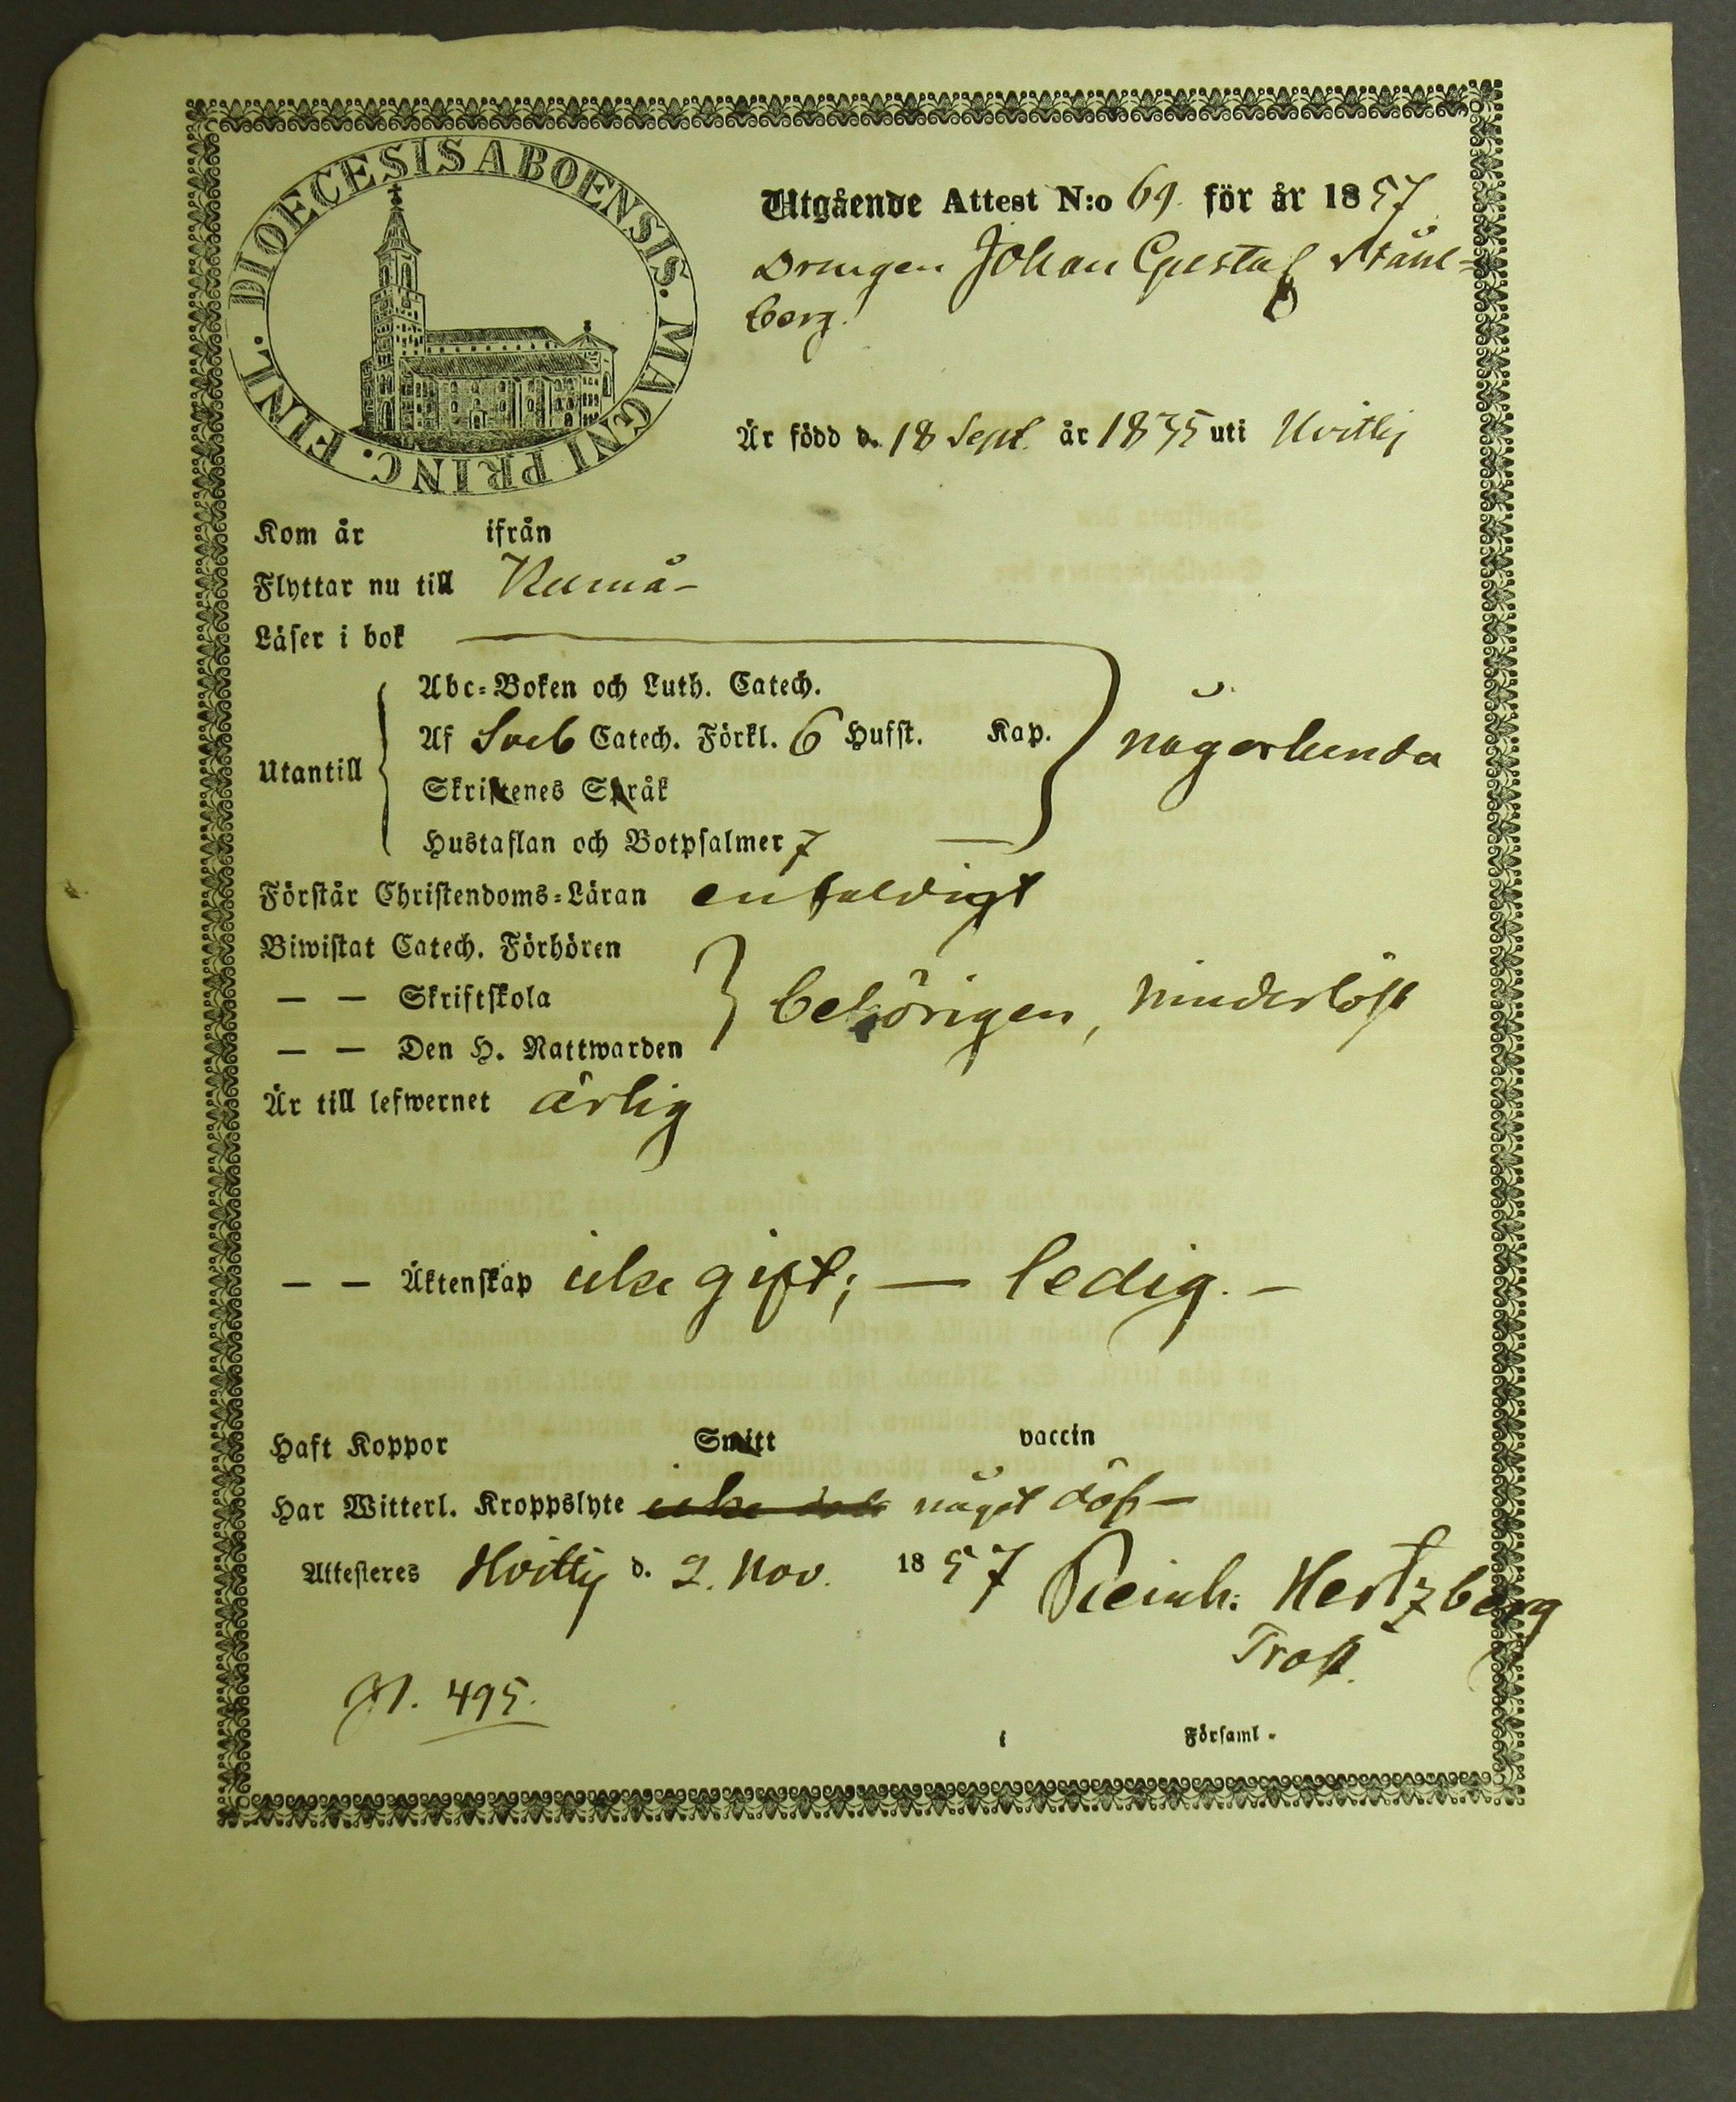 DIOECESIS ABOENSIS. MAGNI PRINC. FINL.
Utgående Attest N:o 69. för år 1857
Drengen Johan Gustaf Stånl-
berg.
Är född d. 18 Sept. år 1835 uti Hvittis
Kom år ifrån
Flyttar nu till Kumå-
Läser i bok
Abc-Boken och Luth. Catech.
Af Sveb Catech. Förkl. 6 Hufst. Kap.
någorlunda
Utantill
Skriftenes Språk
Hustaflan och Botpsalmer 7
Förstår Christendoms-Läran enfaldigt
Biwistat Catech. Förhören
— — Skriftskola
behörigen, hinderlöst
— — Den H. Nattwarden
Är till lefwernet ärlig
— — Äktenskap icke gift; — ledig. —
Haft Koppor Smitt vaccin
Har Witterl. Kroppslyte icke något döf —
Attesteres Hvittis d. 2. Nov. 1857 Reinh. Hertzberg
Prost.
N. 495.
i Församl-